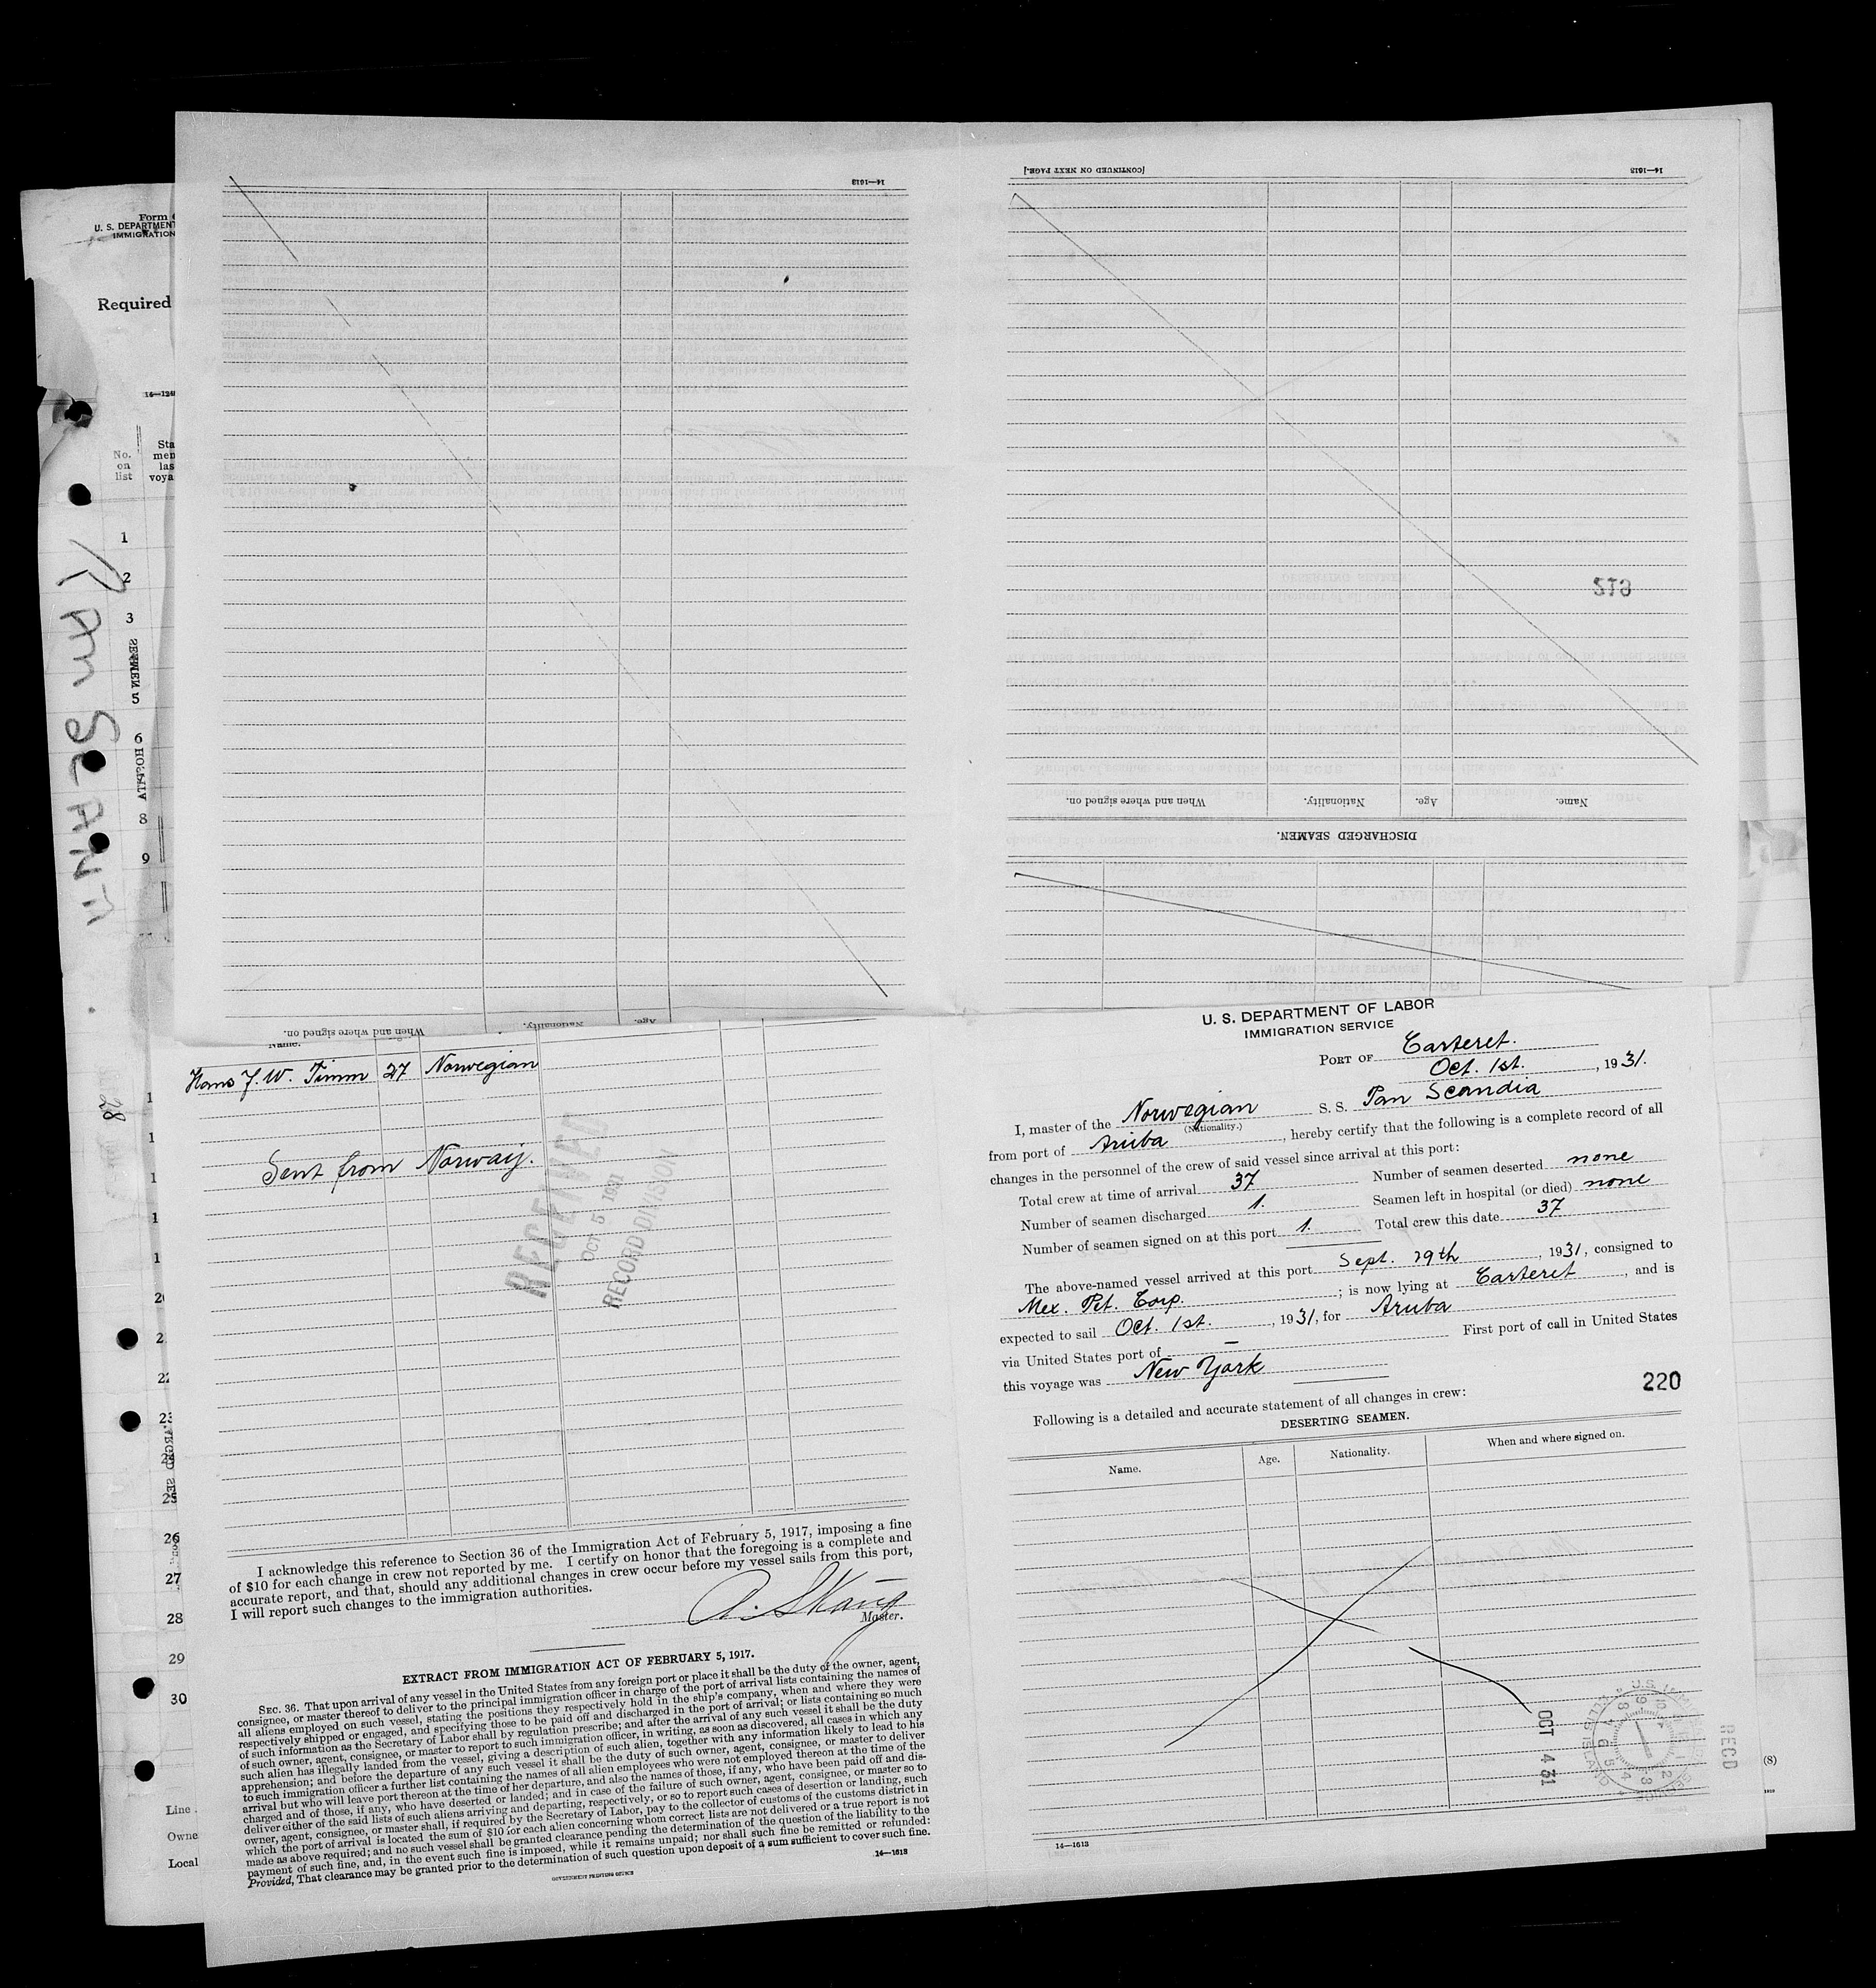 Form
U. S. DEPARTMENT
IMMIGRATION
Required
No. on list
1
2
3
5
6
8
9
28
2
23
26
27
28
29
30
Line
Owne
Local
14—1613
[CONTINUED ON NEXT PAGE.]
14—1613
213
Name.
Age.
Nationality.
When and where signed on.
DISCHARGED SEAMEN.
Age.
Nationality.
When and where signed on.
Name.
Hans F. W. Timm 27 Norwegian
Sent from Norway.
RECEIVED
OCT 5 1931
RECORD DIVISION
I acknowledge this reference to Section 36 of the Immigration Act of February 5, 1917, imposing a fine
of $10 for each change in crew not reported by me. I certify on honor that the foregoing is a complete and
accurate report, and that, should any additional changes in crew occur before my vessel sails from this port,
I will report such changes to the immigration authorities.
Master.
EXTRACT FROM IMMIGRATION ACT OF FEBRUARY 5, 1917.
SEC. 36. That upon arrival of any vessel in the United States from any foreign port or place it shall be the duty of the owner, agent,
consignee, or master thereof to deliver to the principal immigration officer in charge of the port of arrival lists containing the names of
all aliens employed on such vessel, stating the positions they respectively hold in the ship's company, when and where they were
respectively shipped or engaged, and specifying those to be paid off and discharged in the port of arrival; or lists containing so much
of such information as the Secretary of Labor shall by regulation prescribe; and after the arrival of any such vessel it shall be the duty
of such owner, agent, consignee, or master to report to such immigration officer, in writing, as soon as discovered, all cases in which any
such alien has illegally landed from the vessel, giving a description of such alien, together with any information likely to lead to his
apprehension; and before the departure of any such vessel it shall be the duty of such owner, agent, consignee, or master to deliver
to such immigration officer a further list containing the names of all alien employees who were not employed thereon at the time of the
arrival but who will leave port thereon at the time of her departure, and also the names of those, if any, who have been paid off and dis-
charged and of those, if any, who have deserted or landed; and in case of the failure of such owner, agent, consignee, or master so to
deliver either of the said lists of such aliens arriving and departing, respectively, or so to report such cases of desertion or landing, such
owner, agent, consignee, or master shall, if required by the Secretary of Labor, pay to the collector of customs of the customs district in
which the port of arrival is located the sum of $10 for each alien concerning whom correct lists are not delivered or a true report is not
made as above required; and no such vessel shall be granted clearance pending the determination of the question of the liability to the
payment of such fine, and, in the event such fine is imposed, while it remains unpaid; nor shall such fine be remitted or refunded:
Provided, That clearance may be granted prior to the determination of such question upon deposit of a sum sufficient to cover such fine.
14—1613
GOVERNMENT PRINTING OFFICE
U. S. DEPARTMENT OF LABOR
IMMIGRATION SERVICE
PORT OF Carteret.
Oct. 1st., 1931.
I, master of the Norwegian S. S. Pan Scandia
(Nationality.)
from port of Aruba, hereby certify that the following is a complete record of all
changes in the personnel of the crew of said vessel since arrival at this port:
Total crew at time of arrival 37 Number of seamen deserted none
Number of seamen discharged 1. Seamen left in hospital (or died) none
Number of seamen signed on at this port 1. Total crew this date 37
The above-named vessel arrived at this port Sept. 29th, 1931, consigned to
Mex. Pet. Corp. ; is now lying at Carteret, and is
expected to sail Oct. 1st., 1931, for Aruba
via United States port of — First port of call in United States
this voyage was New York
220
Following is a detailed and accurate statement of all changes in crew:
DESERTING SEAMEN.
Name. Age. Nationality. When and where signed on.
OCT 4 31
RECD
(8)
14—1613